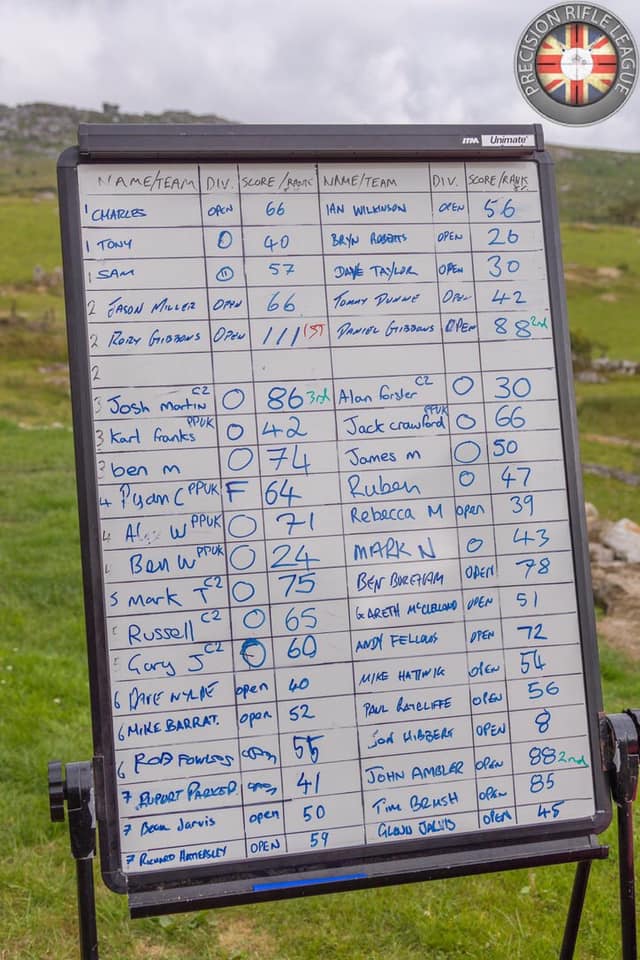 PRECISION RIFLE LEAGUE
ITM Unimate
NAME/TEAM DIV. SCORE/RANK NAME/TEAM DIV. SCORE/RANK
1 CHARLES OPEN 66 IAN WILKINSON OPEN 56
1 TONY O 40 BRYN ROBERTS OPEN 26
1 SAM O 57 DAVE TAYLOR OPEN 30
2 JASON MILLER OPEN 66 TOMMY DUNNE OPEN 42
2 RORY GIBBONS OPEN 111 1ST DANIEL GIBBONS OPEN 88 2nd
2
3 Josh martin C2 O 86 3rd Alan forster C2 O 30
3 Karl franks PPUK O 42 Jack crawford PPUK O 66
3 ben m O 74 James m O 50
4 Ryan C PPUK F 64 Ruben O 47
4 W PPUK O 71 Rebecca M open 39
Ben W PPUK O 24 MARK N O 43
5 Mark T C2 O 75 BEN BOREHAM OPEN 78
Russell C2 O 65 GARETH MCCLELAND OPEN 51
5 Gary J C2 O 60 ANDY FELLOWS OPEN 72
6 DAVE open 40 MIKE OPEN 54
6 MIKE BARRAT. open 52 PAUL RATCLIFFE OPEN 56
6 ROB FOWLES open 55 JON HIBBERT OPEN 8
7 RUPORT PARKER open 41 JOHN AMBLER OPEN 88 2nd
7 Beau Jarvis open 50 TIM BRUSH OPEN 85
7 RICHARD HATTERSLEY OPEN 59 GLENN JARVIS OPEN 45